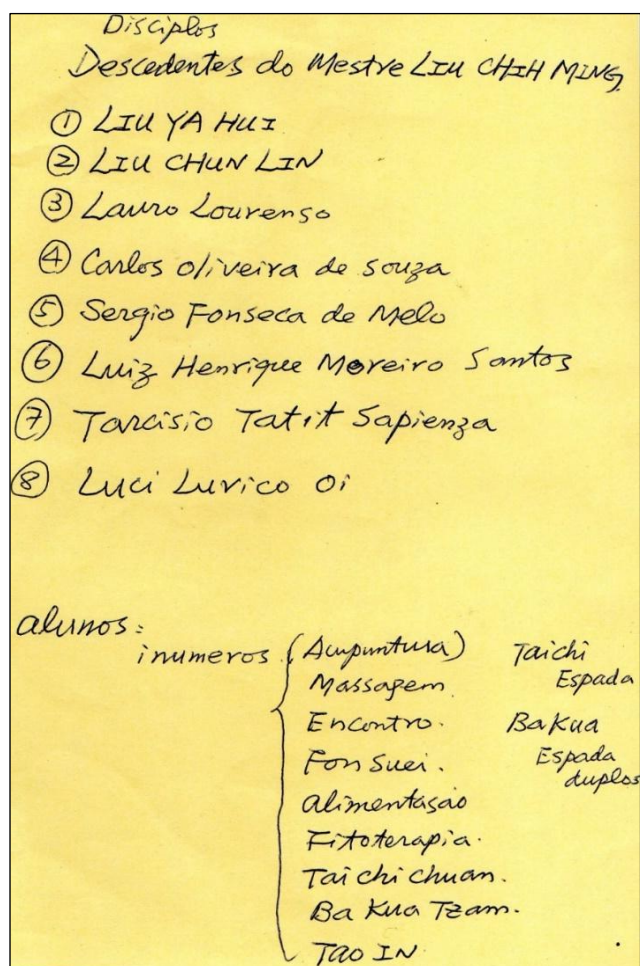 Disciplos
Descedentes do Mestre LIU CHIH MING
① LIU YA HUI
② LIU CHUN LIN
③ Lauro Lourenso
④ Carlos oliveira de souza
⑤ Sergio Fonseca de Melo
⑥ Luiz Henrique Moreiro Santos
⑦ Tarcisio Tatit Sapienza
⑧ Luci Luvico Oi
alunos:
inumeros (Acupuntura)
Massagem
Encontro.
Fon Suei.
alimentasão
Fitoterapia.
Tai chi chuan.
Ba Kua Tzam.
TAO IN
Taichi
Espada
BaKua
Espada
duplos